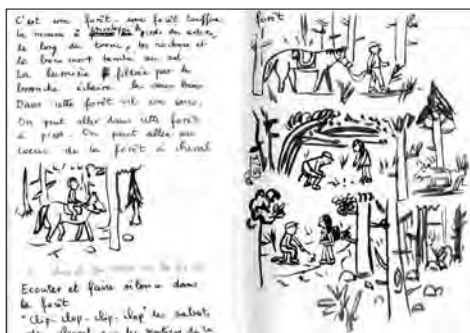 C'est une forêt. une forêt touffue
La mousse à enveloppe le pieds des arbres,
le long du tronc, les rochers et
le bois mort tombé au sol
La lumière filtrée par la
branche éclaire les sous bois
Dans cette forêt vit un ours,
On peut aller dans cette forêt
à pied. On peut aller au
coeur de la forêt à cheval
Ecouter et faire silence dans
la forêt
"Clip-clop-clip-clop" les sabots
du cheval sur les sentiers de la
forêt